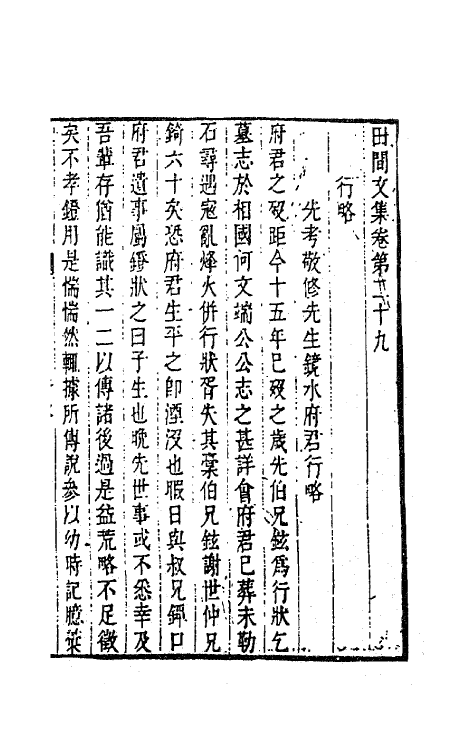 田間文集卷第二十九
行略
先考敬修先生鏡水府君行略
府君之歿距今十五年已歿之歲先伯兄鉉爲行狀乞
墓志於相國何文端公公志之甚詳會府君已葬未勒
石尋遇寇亂烽火併行狀胥失其藁伯兄鉉謝世仲兄
錡六十矣恐府君生平之卽湮沒也暇日與叔兄鐔口
府君遺事屬錚狀之曰子生也晚先世事或不悉幸及
吾輩存猶能識其一二以傳諸後過是益荒略不足徵
矣不孝鐙用是惴惴然輒據所傳說參以幼時記臆彙